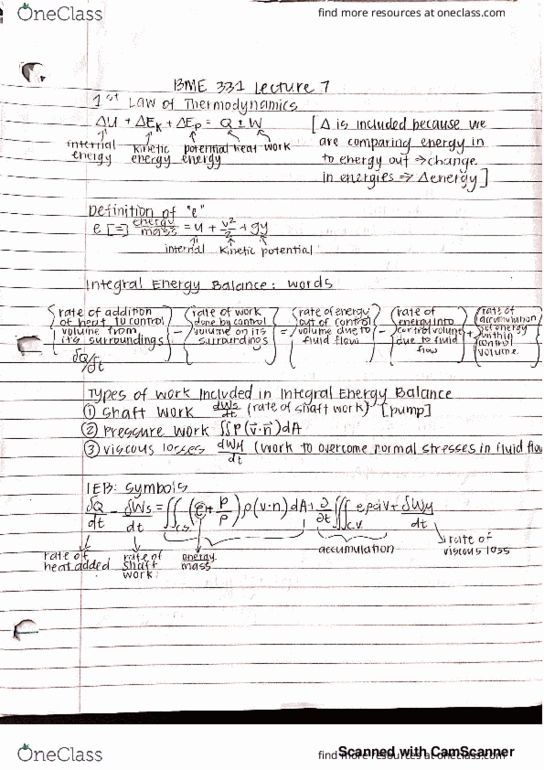 OneClass
find more resources at oneclass.com
BME 331 Lecture 7
1st Law of Thermodynamics
ΔU + ΔEk + ΔEp = Q ± W
internal energy
kinetic energy
potential energy
heat
work
[Δ is included because we
are comparing energy in
to energy out ⇒ change
in energies ⇒ Δenergy]
Definition of "e"
e [=] energy/mass = u + v²/2 + gy
internal kinetic potential
Integral Energy Balance: words
{rate of addition of heat to control volume from its surroundings} − {rate of work done by control volume on its surroundings} = {rate of energy out of control volume due to fluid flow} − {rate of energy into control volume due to fluid flow} + {rate of accumulation of energy within control volume}
δQ/δt
Types of work Included in Integral Energy Balance
① Shaft work dWs/dt (rate of shaft work) [pump]
② Pressure work ∬P(v⃗·n⃗)dA
③ viscous losses dWμ/dt (work to overcome normal stresses in fluid flow
IEB: symbols
δQ/dt − δWs/dt = ∬c.s. (e + P/ρ) ρ(v·n) dA + ∂/∂t ∭c.v. eρdV + δWμ/dt
rate of heat added
rate of shaft work
energy/mass
accumulation
rate of viscous loss
OneClass
find more resources at oneclass.com
Scanned with CamScanner